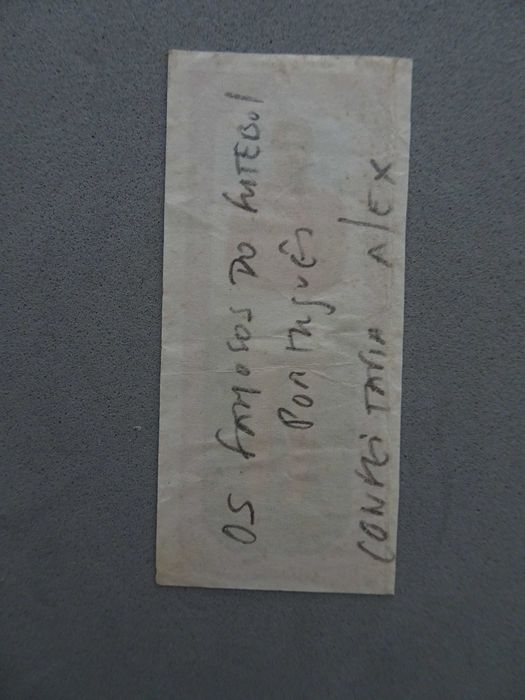 OS FAMOSOS DO FUTEBOL
PORTUGUÊS
CONFEITARIA ALEX